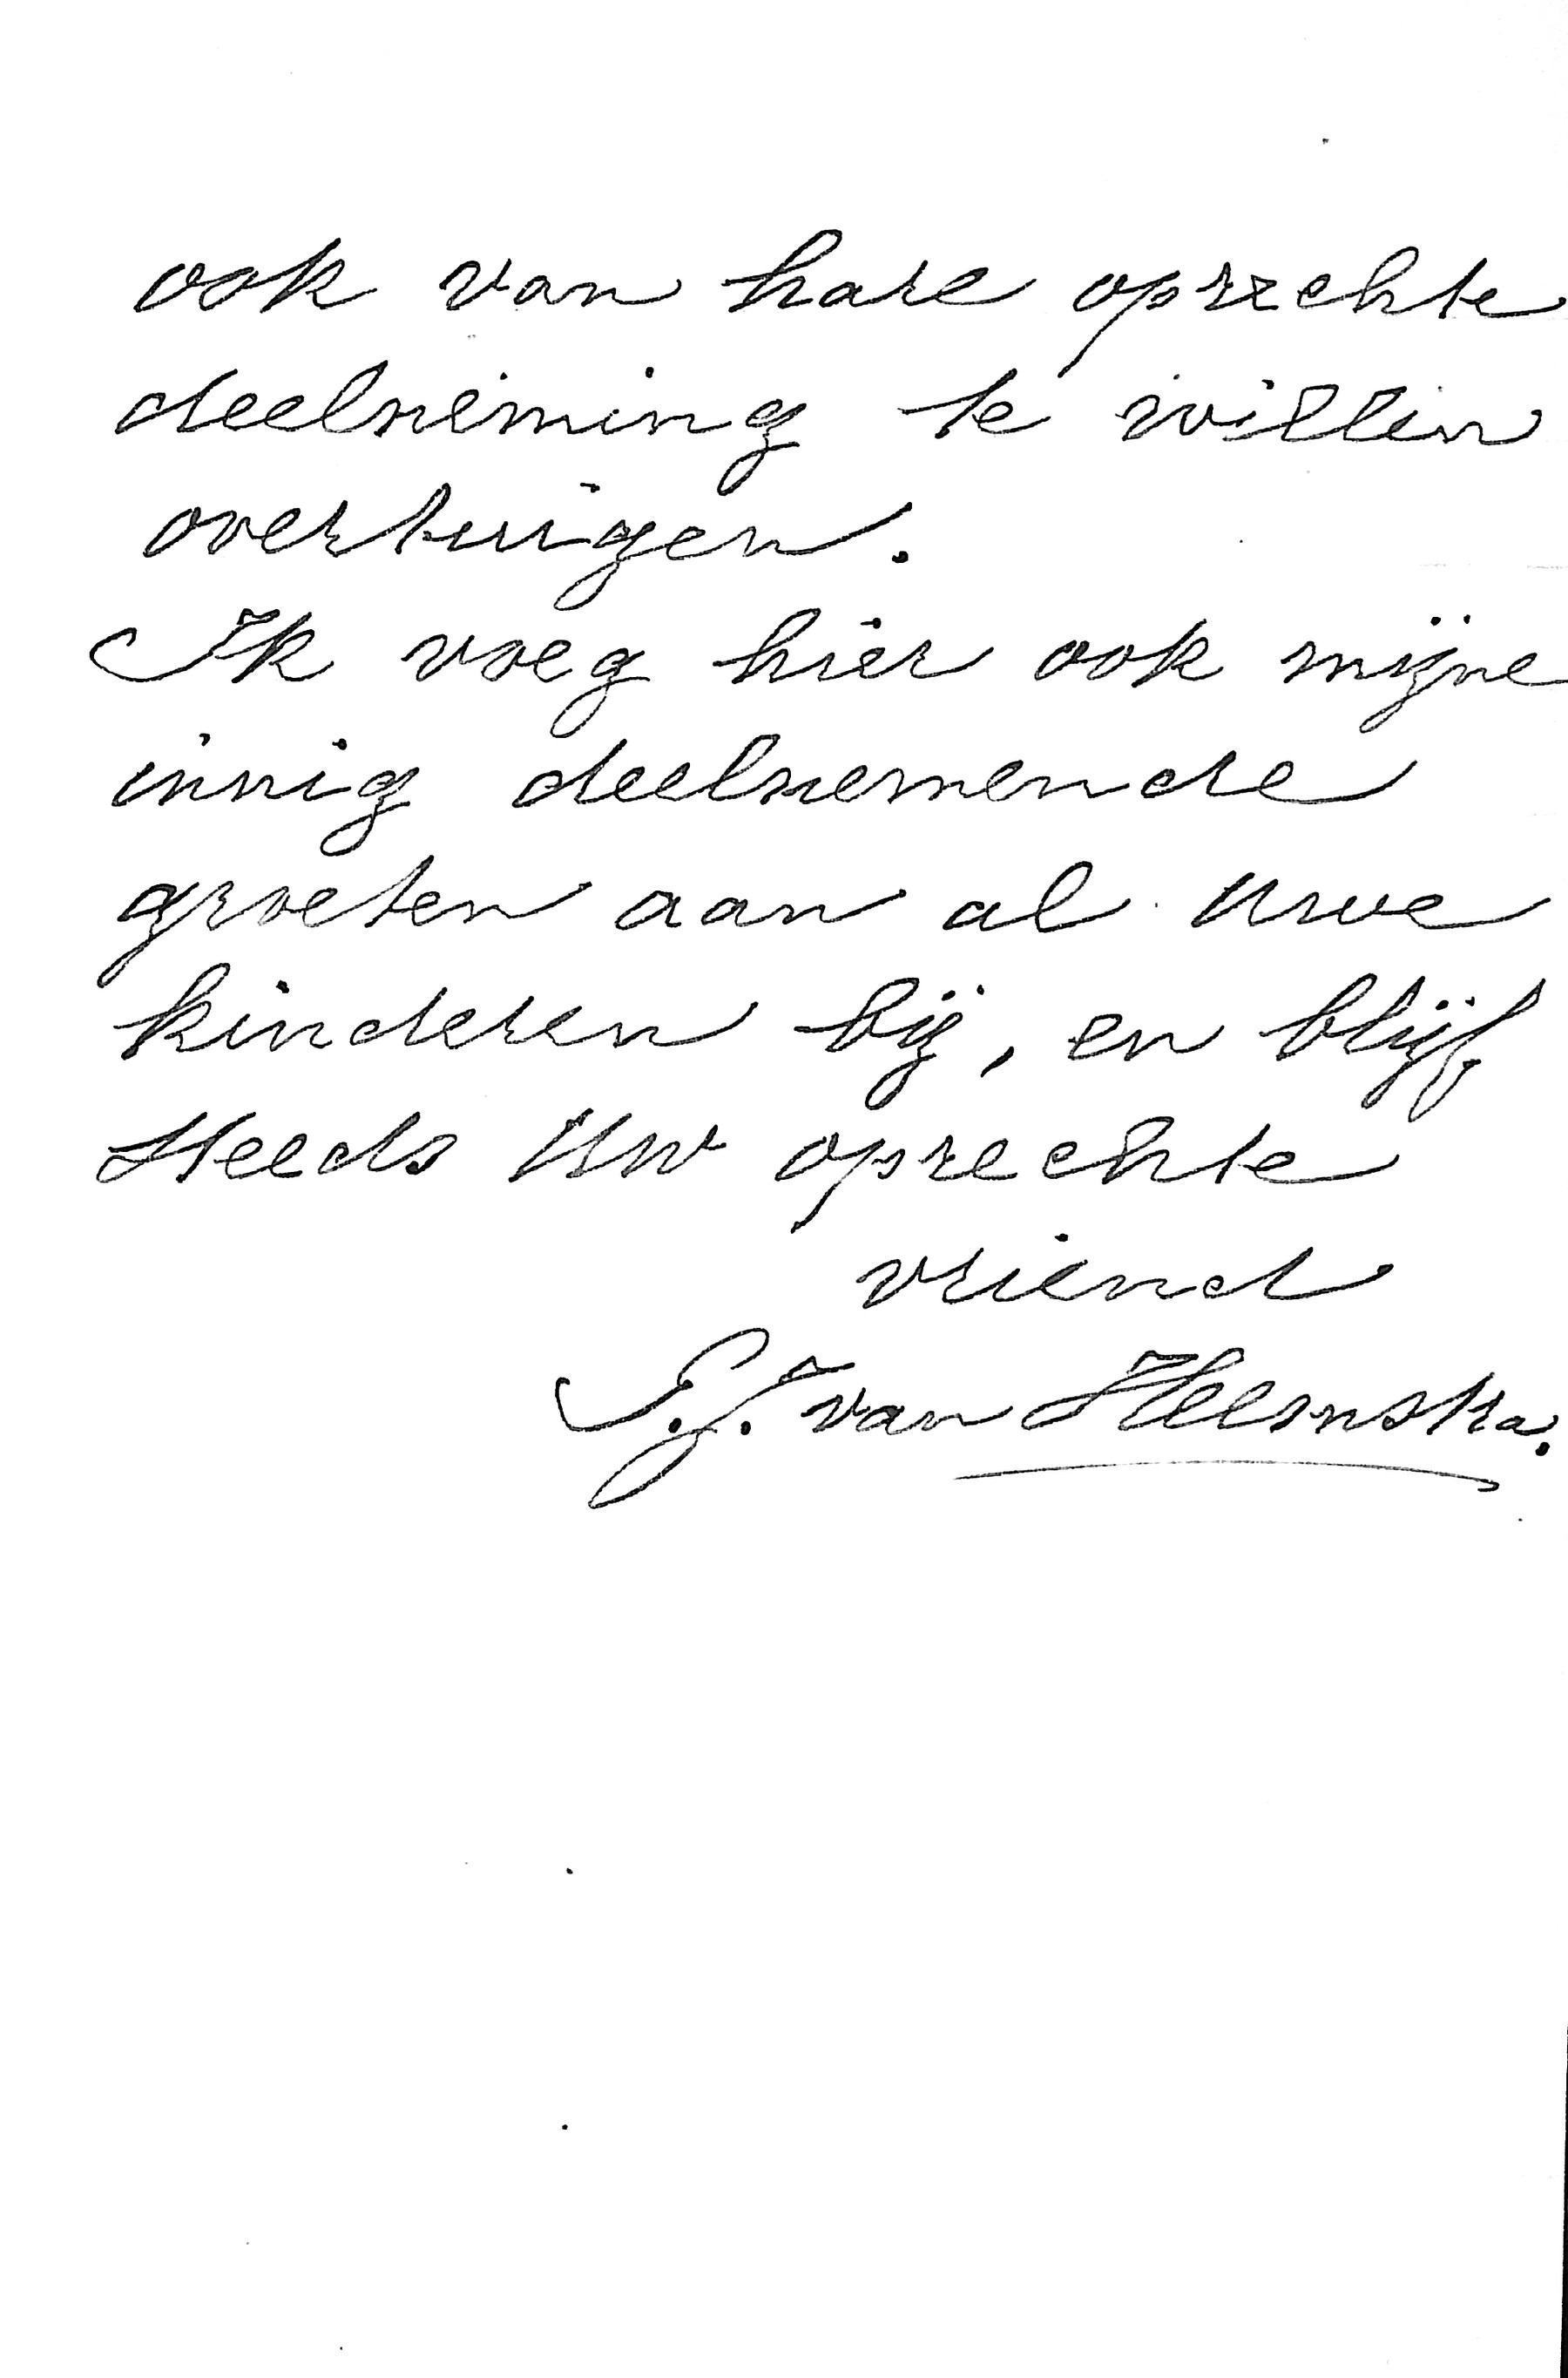 ook van hare oprechte
deelneming te willen
overtuigen.
Ik voeg hier ook mijne
innig deelnemende
groeten aan al Uwe
kinderen bij, en blijf
steeds Uw oprechte
vriend
S.J. van Heemskra.